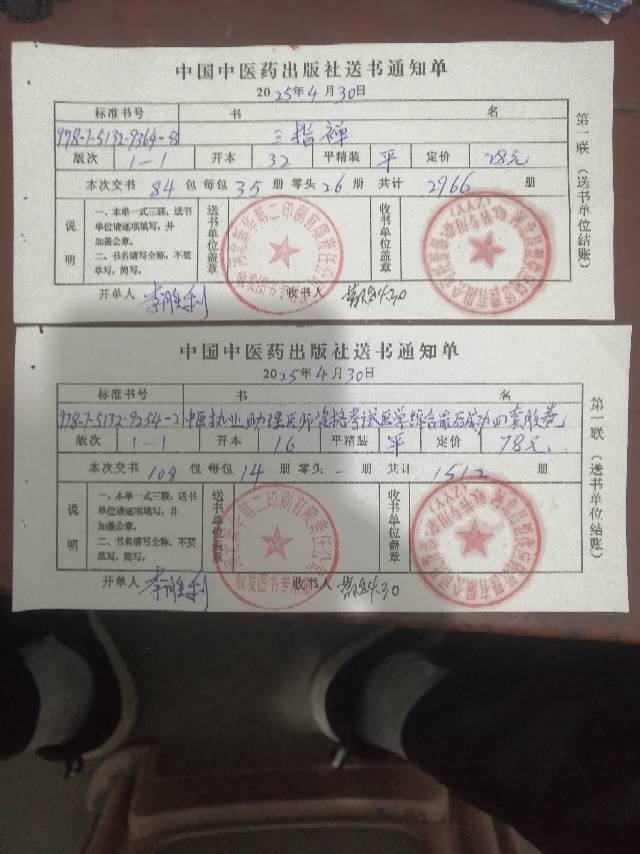 中国中医药出版社送书通知单
2025年4月30日
标准书号 书 名
978-7-5132-9364-8 三指禅
版次 1-1 开本 32 平精装 平 定价 28元
本次交书 84 包 每包 35 册 零头 26 册 共计 2966 册
说明
一、本单一式三联，送书
单位请逐项填写，并
加盖公章。
二、书名请写全称，不要
草写，简写。
送书单位盖章
收书单位盖章
开单人 李胜利 收书人
第一联（送书单位结账）
中国中医药出版社送书通知单
2025年4月30日
标准书号 书 名
978-7-5132-9254-2 中医执业助理医师资格考试医学综合最后成功四套胜卷
版次 1-1 开本 16 平精装 平 定价 78元
本次交书 108 包 每包 14 册 零头 - 册 共计 1512 册
说明
一、本单一式三联，送书
单位请逐项填写，并
加盖公章。
二、书名请写全称，不要
草写，简写。
送书单位盖章
收书单位盖章
开单人 李胜利 收书人
第一联（送书单位结账）